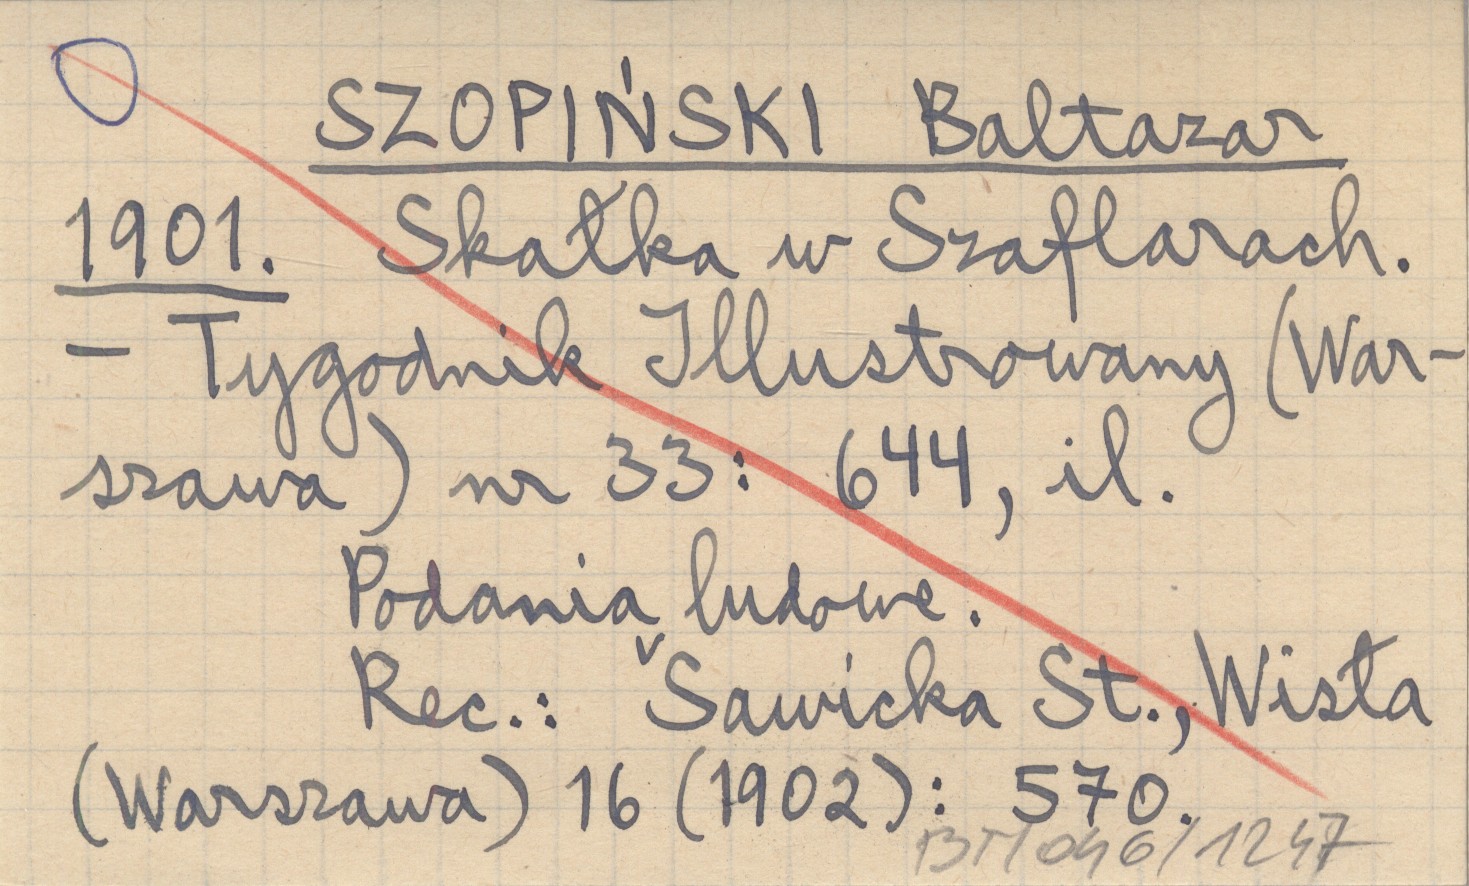 SZOPIŃSKI Baltazar
1901. Skałka w Szaflarach.
– Tygodnik Illustrowany (War-
szawa) nr 33: 644, il.
Podania ludowe.
Rec.: ˇSawicka St., Wisła
(Warszawa) 16 (1902): 570.
BT/046/1247